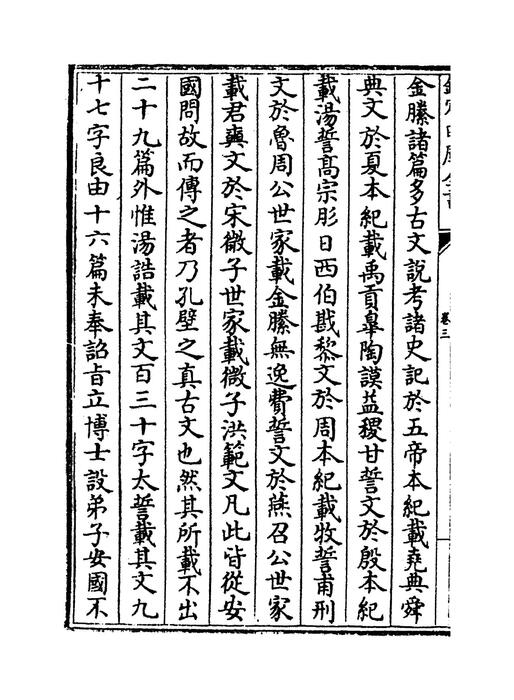 欽定四庫全書
卷三
金縢諸篇多古文說考諸史記於五帝本紀載堯典舜
典文於夏本紀載禹貢臯陶謨益稷甘誓文於殷本紀
載湯誓高宗肜日西伯戡黎文於周本紀載牧誓甫刑
文於魯周公世家載金縢無逸費誓文於燕召公世家
載君奭文於宋微子世家載微子洪範文凡此皆從安
國問故而傳之者乃孔壁之真古文也然其所載不出
二十九篇外惟湯誥載其文百三十字太誓載其文九
十七字良由十六篇未奉詔旨立博士設弟子安國不